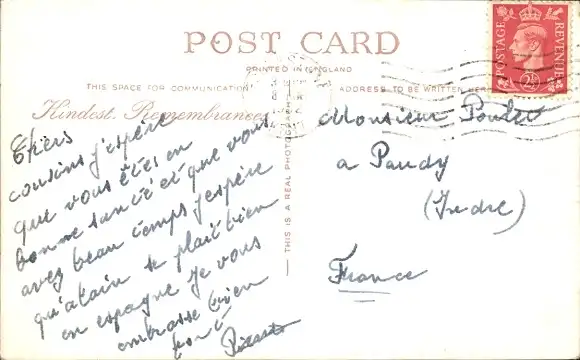 POST CARD
PRINTED IN ENGLAND
THIS SPACE FOR COMMUNICATION
ADDRESS TO BE WRITTEN HERE
Kindest Remembrances
Chers
cousins j'espère
que vous êtes en
bonne santé et que vous
avez beau temps j'espère
qu'alain se plait bien
en espagne je vous
embrasse bien
fort
THIS IS A REAL PHOTOGRAPH
Monsieur
a Paudy
(Indre)
France
POSTAGE
REVENUE
2½